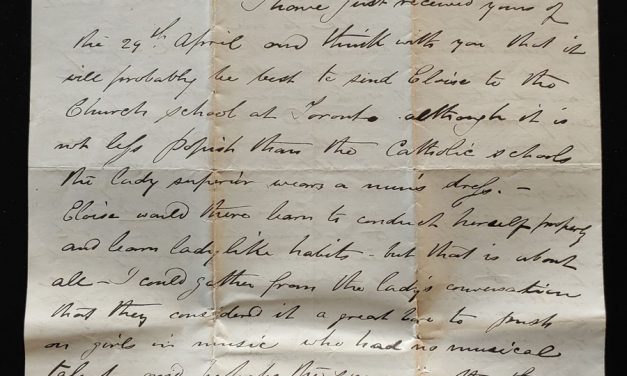 I have just received yours of
the 29th April and think with you that it
will probably be best to send Eloise to the
Church school at Toronto although it is
not less Popish than the Catholic schools
the lady superior wears a nun's dress. –
Eloise would there learn to conduct herself properly
and learn lady like habits - but that is about
all – I could gather from the lady's conversation
that they considered it a great bore to push
on girls in music who had no musical
talent and